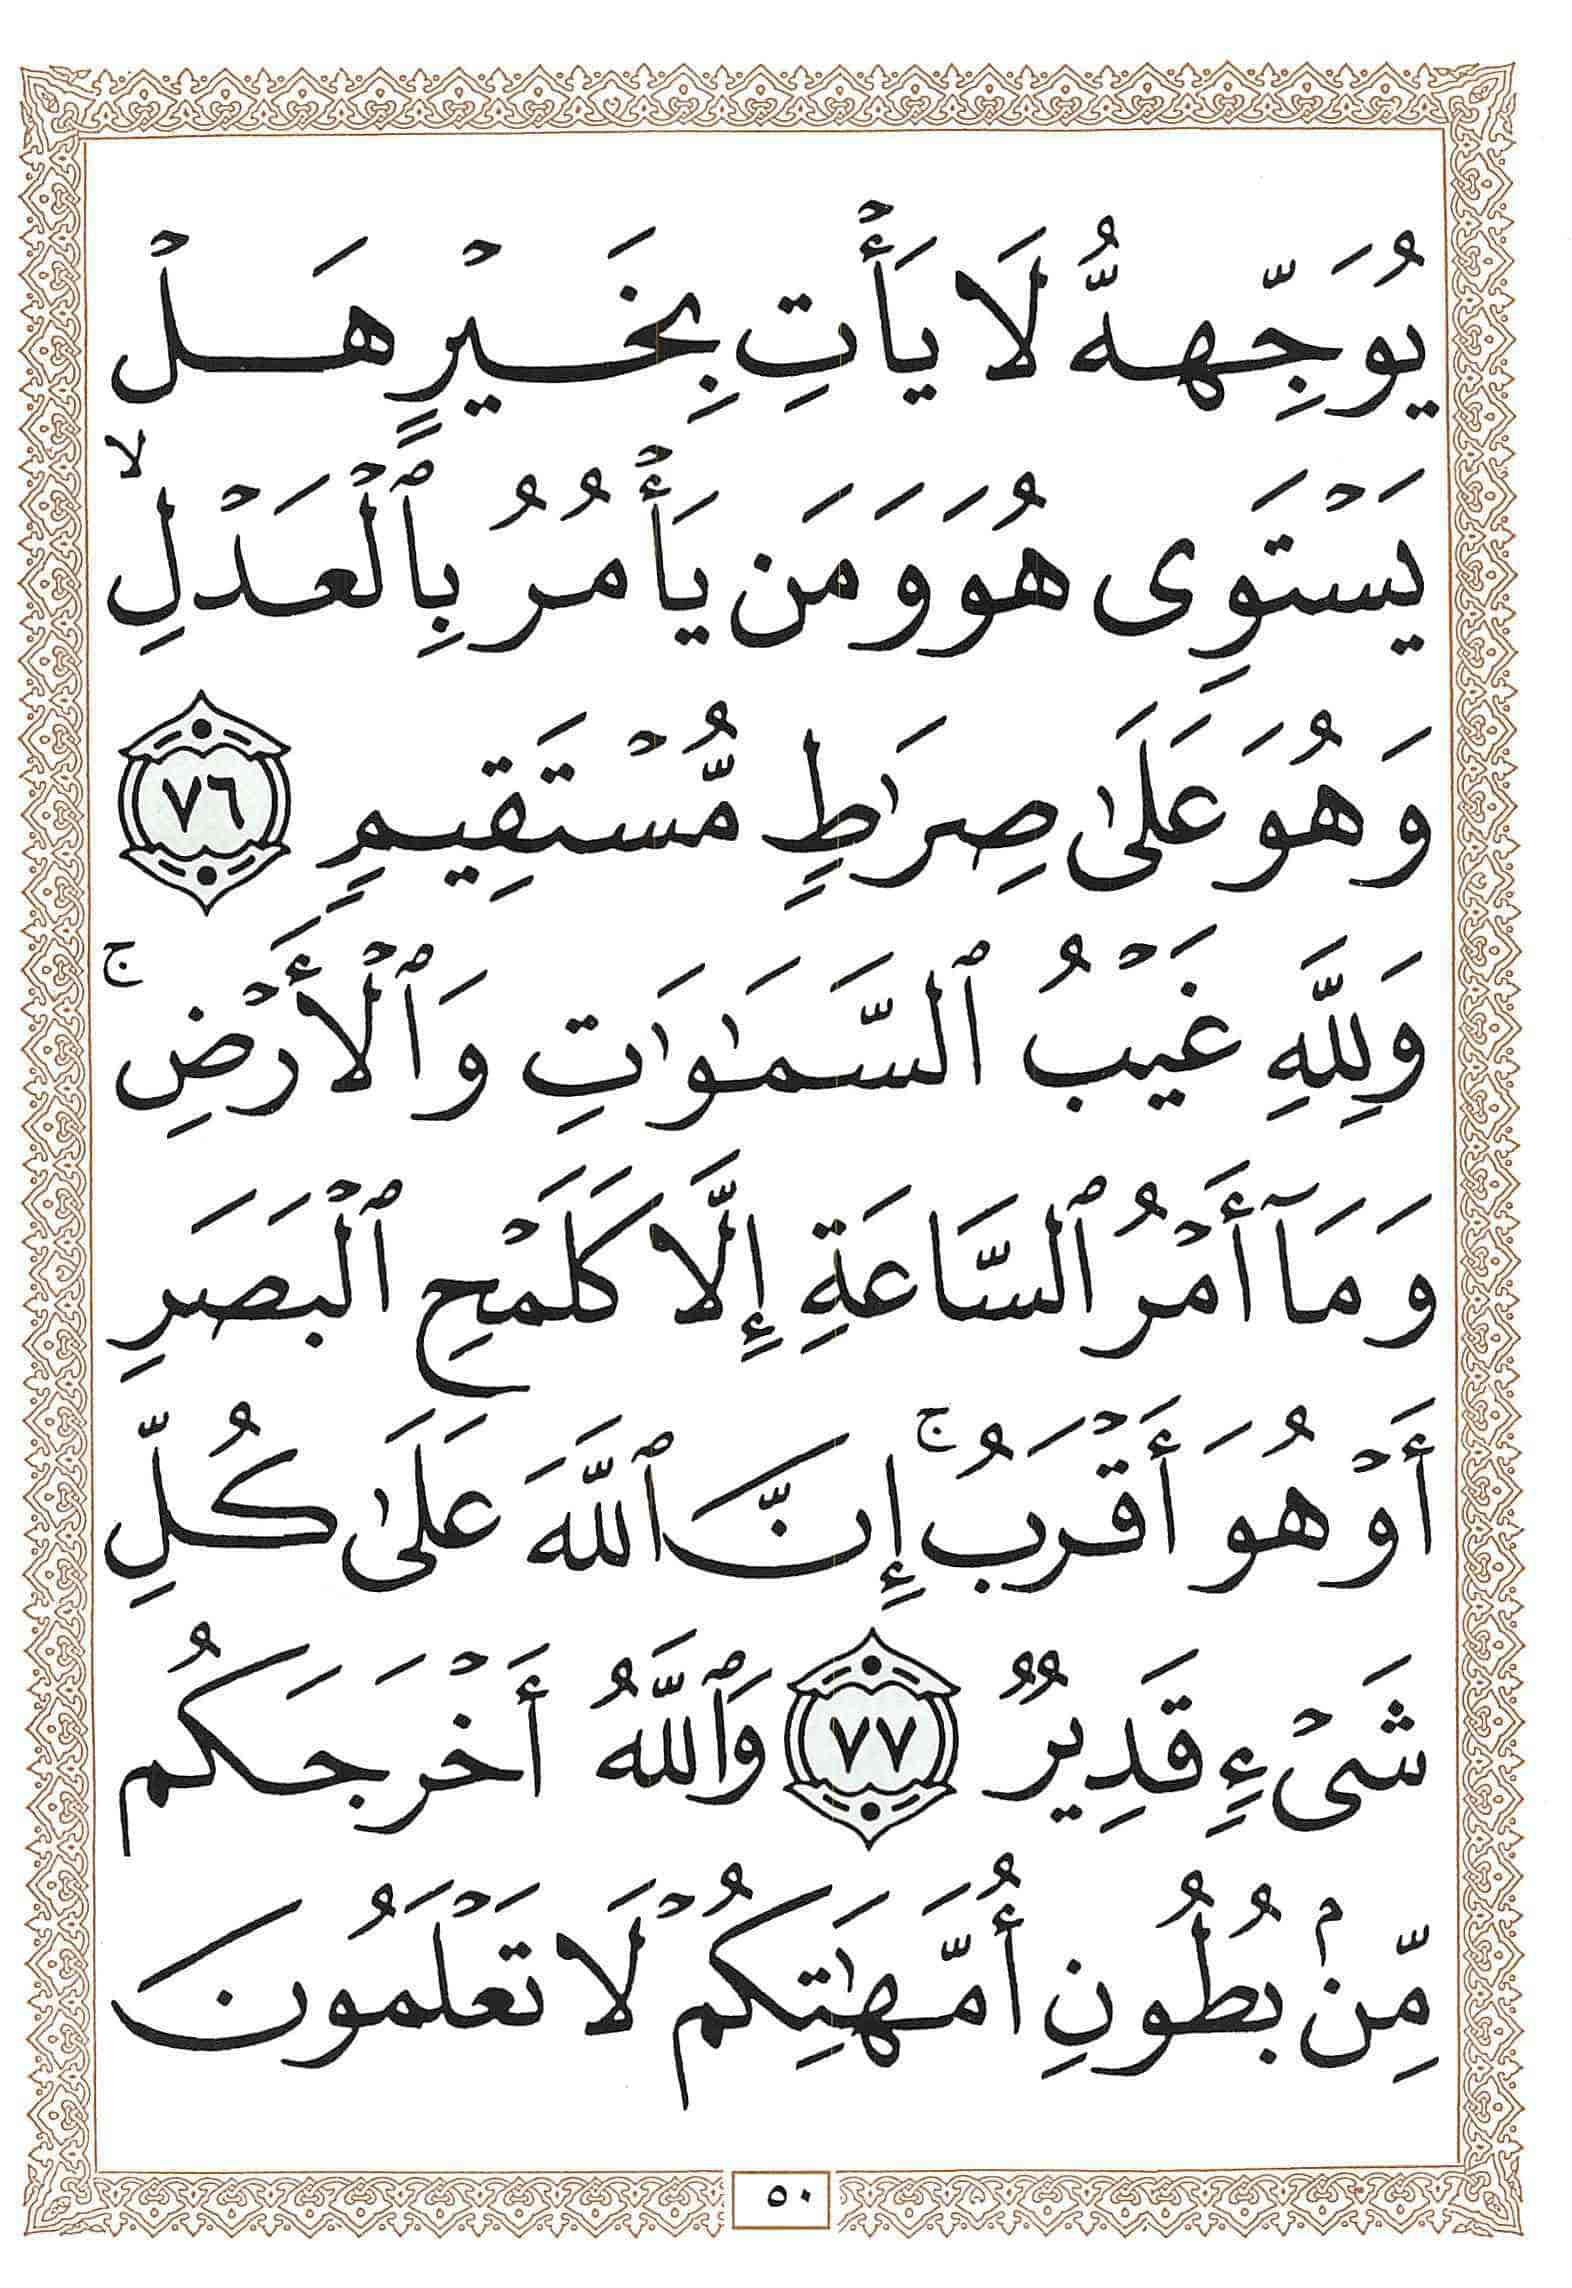 يُوَجِّههُّ لَا يَأْتِ بِخَيْرٍ هَلْ
يَسْتَوِى هُوَ وَمَن يَأْمُرُ بِٱلْعَدْلِ ۙ
وَهُوَ عَلَىٰ صِرَٰطٍ مُّسْتَقِيمٍ ٧٦
وَلِلَّهِ غَيْبُ ٱلسَّمَٰوَٰتِ وَٱلْأَرْضِ ۚ
وَمَآ أَمْرُ ٱلسَّاعَةِ إِلَّا كَلَمْحِ ٱلْبَصَرِ
أَوْ هُوَ أَقْرَبُ ۚ إِنَّ ٱللَّهَ عَلَىٰ كُلِّ
شَىْءٍ قَدِيرٌ ٧٧ وَٱللَّهُ أَخْرَجَكُم
مِّنۢ بُطُونِ أُمَّهَٰتِكُمْ لَا تَعْلَمُونَ
٥٠